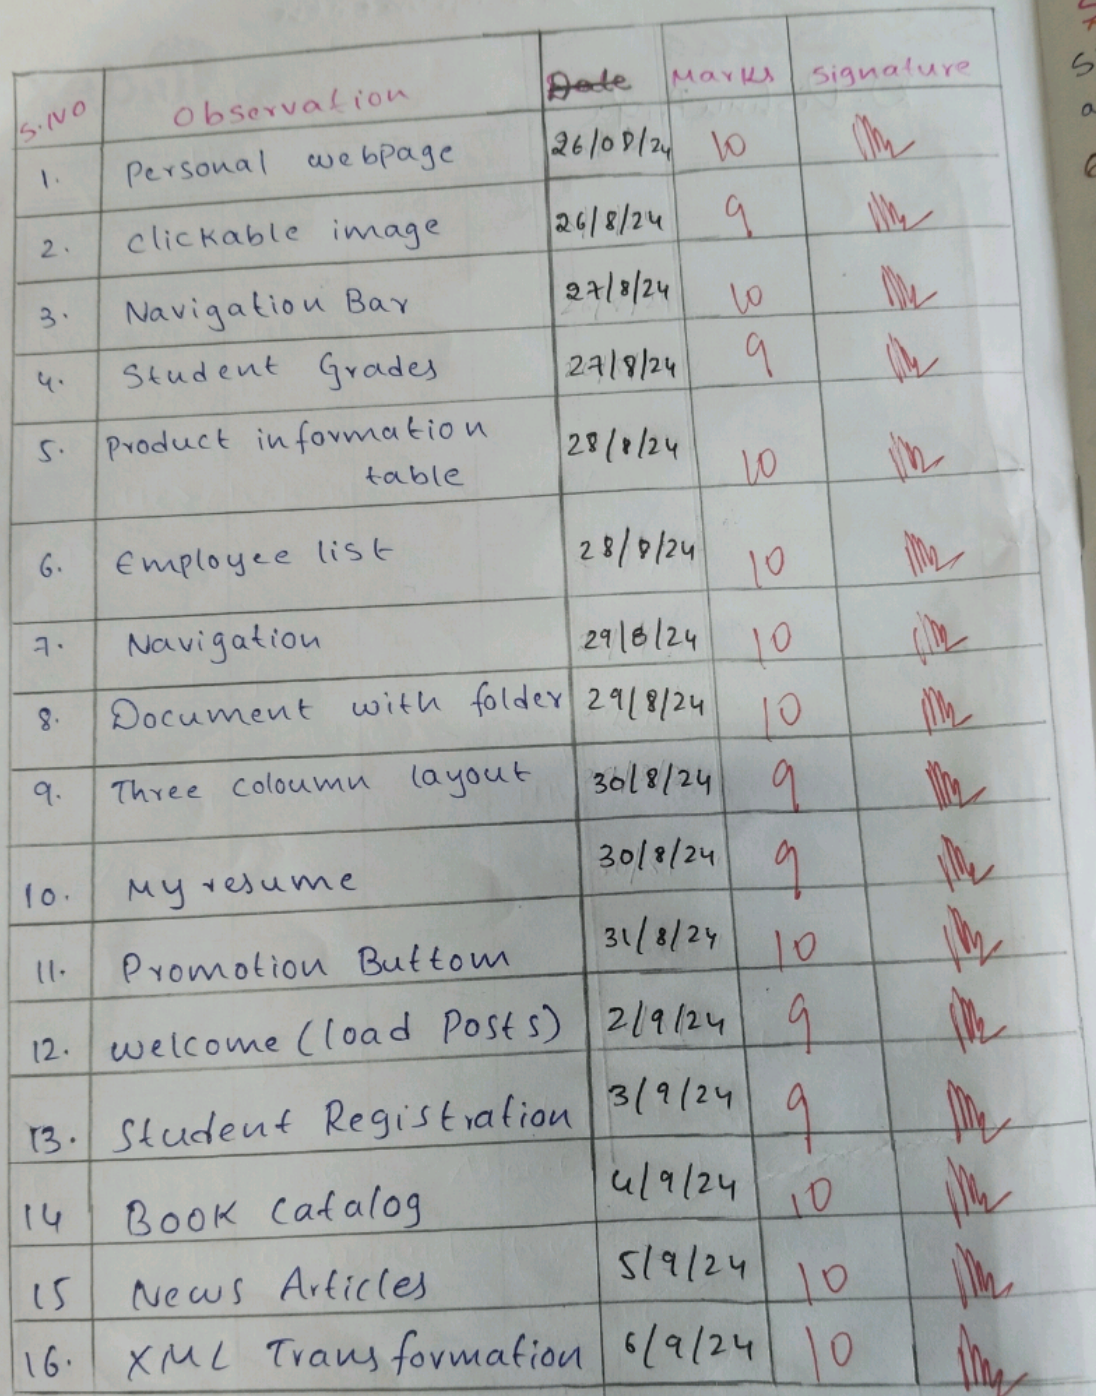 S.NO Observation Date Marks Signature
1. Personal webpage 26/08/24 10
2. Clickable image 26/8/24 9
3. Navigation Bar 27/8/24 10
4. Student Grades 27/8/24 9
5. Product information 28/8/24 10
table
6. Employee list 28/8/24 10
7. Navigation 29/8/24 10
8. Document with folder 29/8/24 10
9. Three coloumn layout 30/8/24 9
10. My resume 30/8/24 9
11. Promotion Buttom 31/8/24 10
12. Welcome (load Posts) 2/9/24 9
13. Student Registration 3/9/24 9
14 Book Catalog 4/9/24 10
15 News Articles 5/9/24 10
16. XML Transformation 6/9/24 10